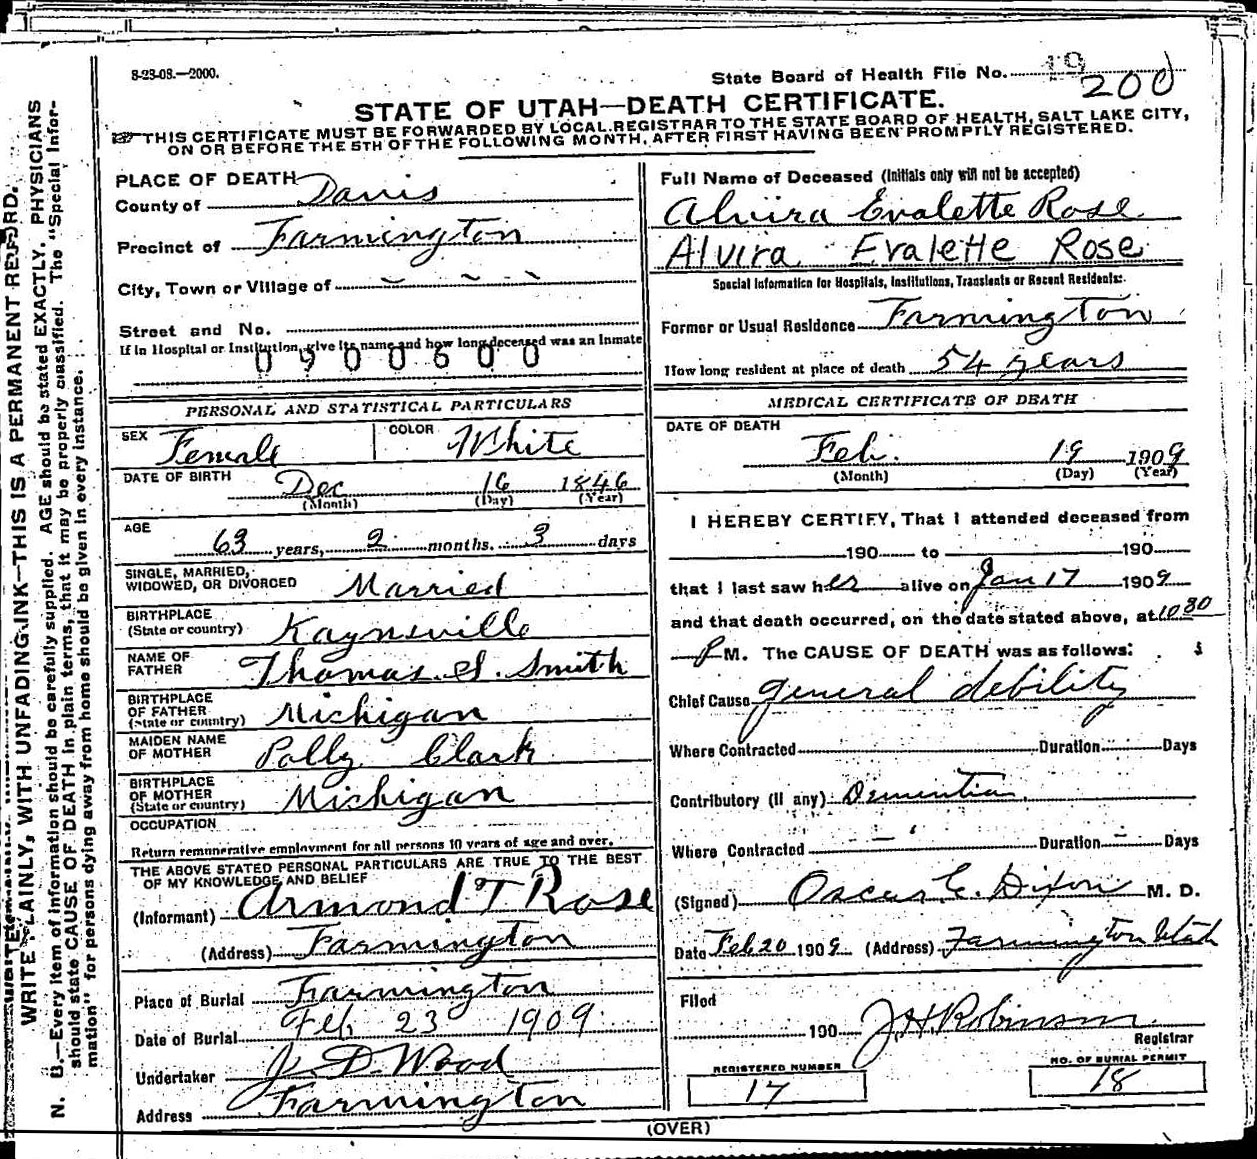 8-23-08.—2000.
State Board of Health File No. 19
200
STATE OF UTAH—DEATH CERTIFICATE.
THIS CERTIFICATE MUST BE FORWARDED BY LOCAL REGISTRAR TO THE STATE BOARD OF HEALTH, SALT LAKE CITY,
ON OR BEFORE THE 5TH OF THE FOLLOWING MONTH, AFTER FIRST HAVING BEEN PROMPTLY REGISTERED.
WRITE PLAINLY, WITH UNFADING INK—THIS IS A PERMANENT RECORD.
N. B.—Every item of information should be carefully supplied. AGE should be stated EXACTLY. PHYSICIANS
should state CAUSE OF DEATH in plain terms, that it may be properly classified. The "Special Infor-
mation" for persons dying away from home should be given in every instance.
PLACE OF DEATH
County of Davis
Precinct of Farmington
City, Town or Village of
Street and No.
If in Hospital or Institution, give its name and how long deceased was an Inmate
0900600
PERSONAL AND STATISTICAL PARTICULARS
SEX Female COLOR White
DATE OF BIRTH Dec 16 1846
(Month) (Day) (Year)
AGE
63 years, 2 months, 3 days
SINGLE, MARRIED,
WIDOWED, OR DIVORCED Married
BIRTHPLACE
(State or country) Kaynsville
NAME OF
FATHER Thomas S. Smith
BIRTHPLACE
OF FATHER
(State or country) Michigan
MAIDEN NAME
OF MOTHER Polly Clark
BIRTHPLACE
OF MOTHER
(State or country) Michigan
OCCUPATION
Return remunerative employment for all persons 10 years of age and over.
THE ABOVE STATED PERSONAL PARTICULARS ARE TRUE TO THE BEST
OF MY KNOWLEDGE AND BELIEF
(Informant) Armond T Rose
(Address) Farmington
Place of Burial Farmington
Date of Burial Feb 23 1909
Undertaker J. D. Wood
Address Farmington
Full Name of Deceased (Initials only will not be accepted)
Alvira Evalette Rose
Alvira Evalette Rose
Special Information for Hospitals, Institutions, Transients or Recent Residents:
Former or Usual Residence Farmington
How long resident at place of death 54 years
MEDICAL CERTIFICATE OF DEATH
DATE OF DEATH
Feb. 19 1909
(Month) (Day) (Year)
I HEREBY CERTIFY, That I attended deceased from
190 to 190
that I last saw her alive on Jan 17 1909
and that death occurred, on the date stated above, at 10 30
P M. The CAUSE OF DEATH was as follows:
Chief Cause general debility
Where Contracted Duration Days
Contributory (if any) Dementia
Where Contracted Duration Days
(Signed) Oscar C. Dixon M. D.
Date Feb 20 1909 (Address) Farmington Utah
Filed
190 J H Robinson
Registrar
REGISTERED NUMBER
17
NO. OF BURIAL PERMIT
18
(OVER)